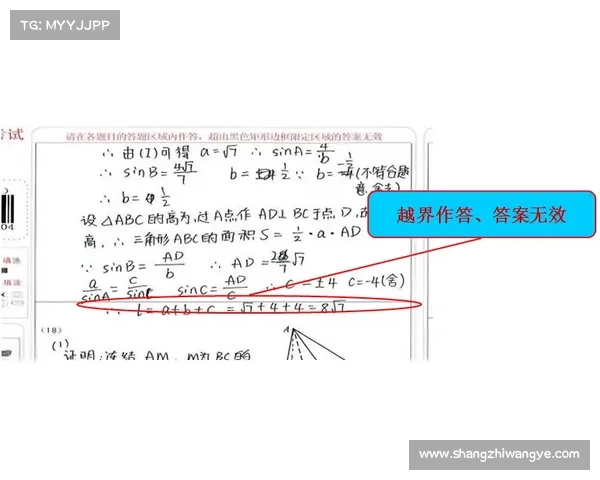 TG: MYYJJPP
考试
请在各题目的答题区域内作答，超出黑色矩形边框限定区域的答案无效
∴ 由(I)可得 a=√7 ∴ sinA=4/b
∴ sinB=4√7/7 b= 1/2 ∵ b=-1/2 (不符合题
意,舍去)
∴ b= 1/2
04
设△ABC的高为,过A点作AD⊥BC于点D,
越界作答、答案无效
高,∴三角形ABC的面积 S=1/2·a·AD
填涂
∵ sinB=AD/b ∴ AD= /7√7
填涂
a/sinA=c/sinC sinC=AD/c ∴ C=±4 C=-4(舍)
∴ l=a+b+c=√7+4+4=8√7
(18)
(1)
A
证明:连结AM,M为BC的
www.shangzhiwangye.com